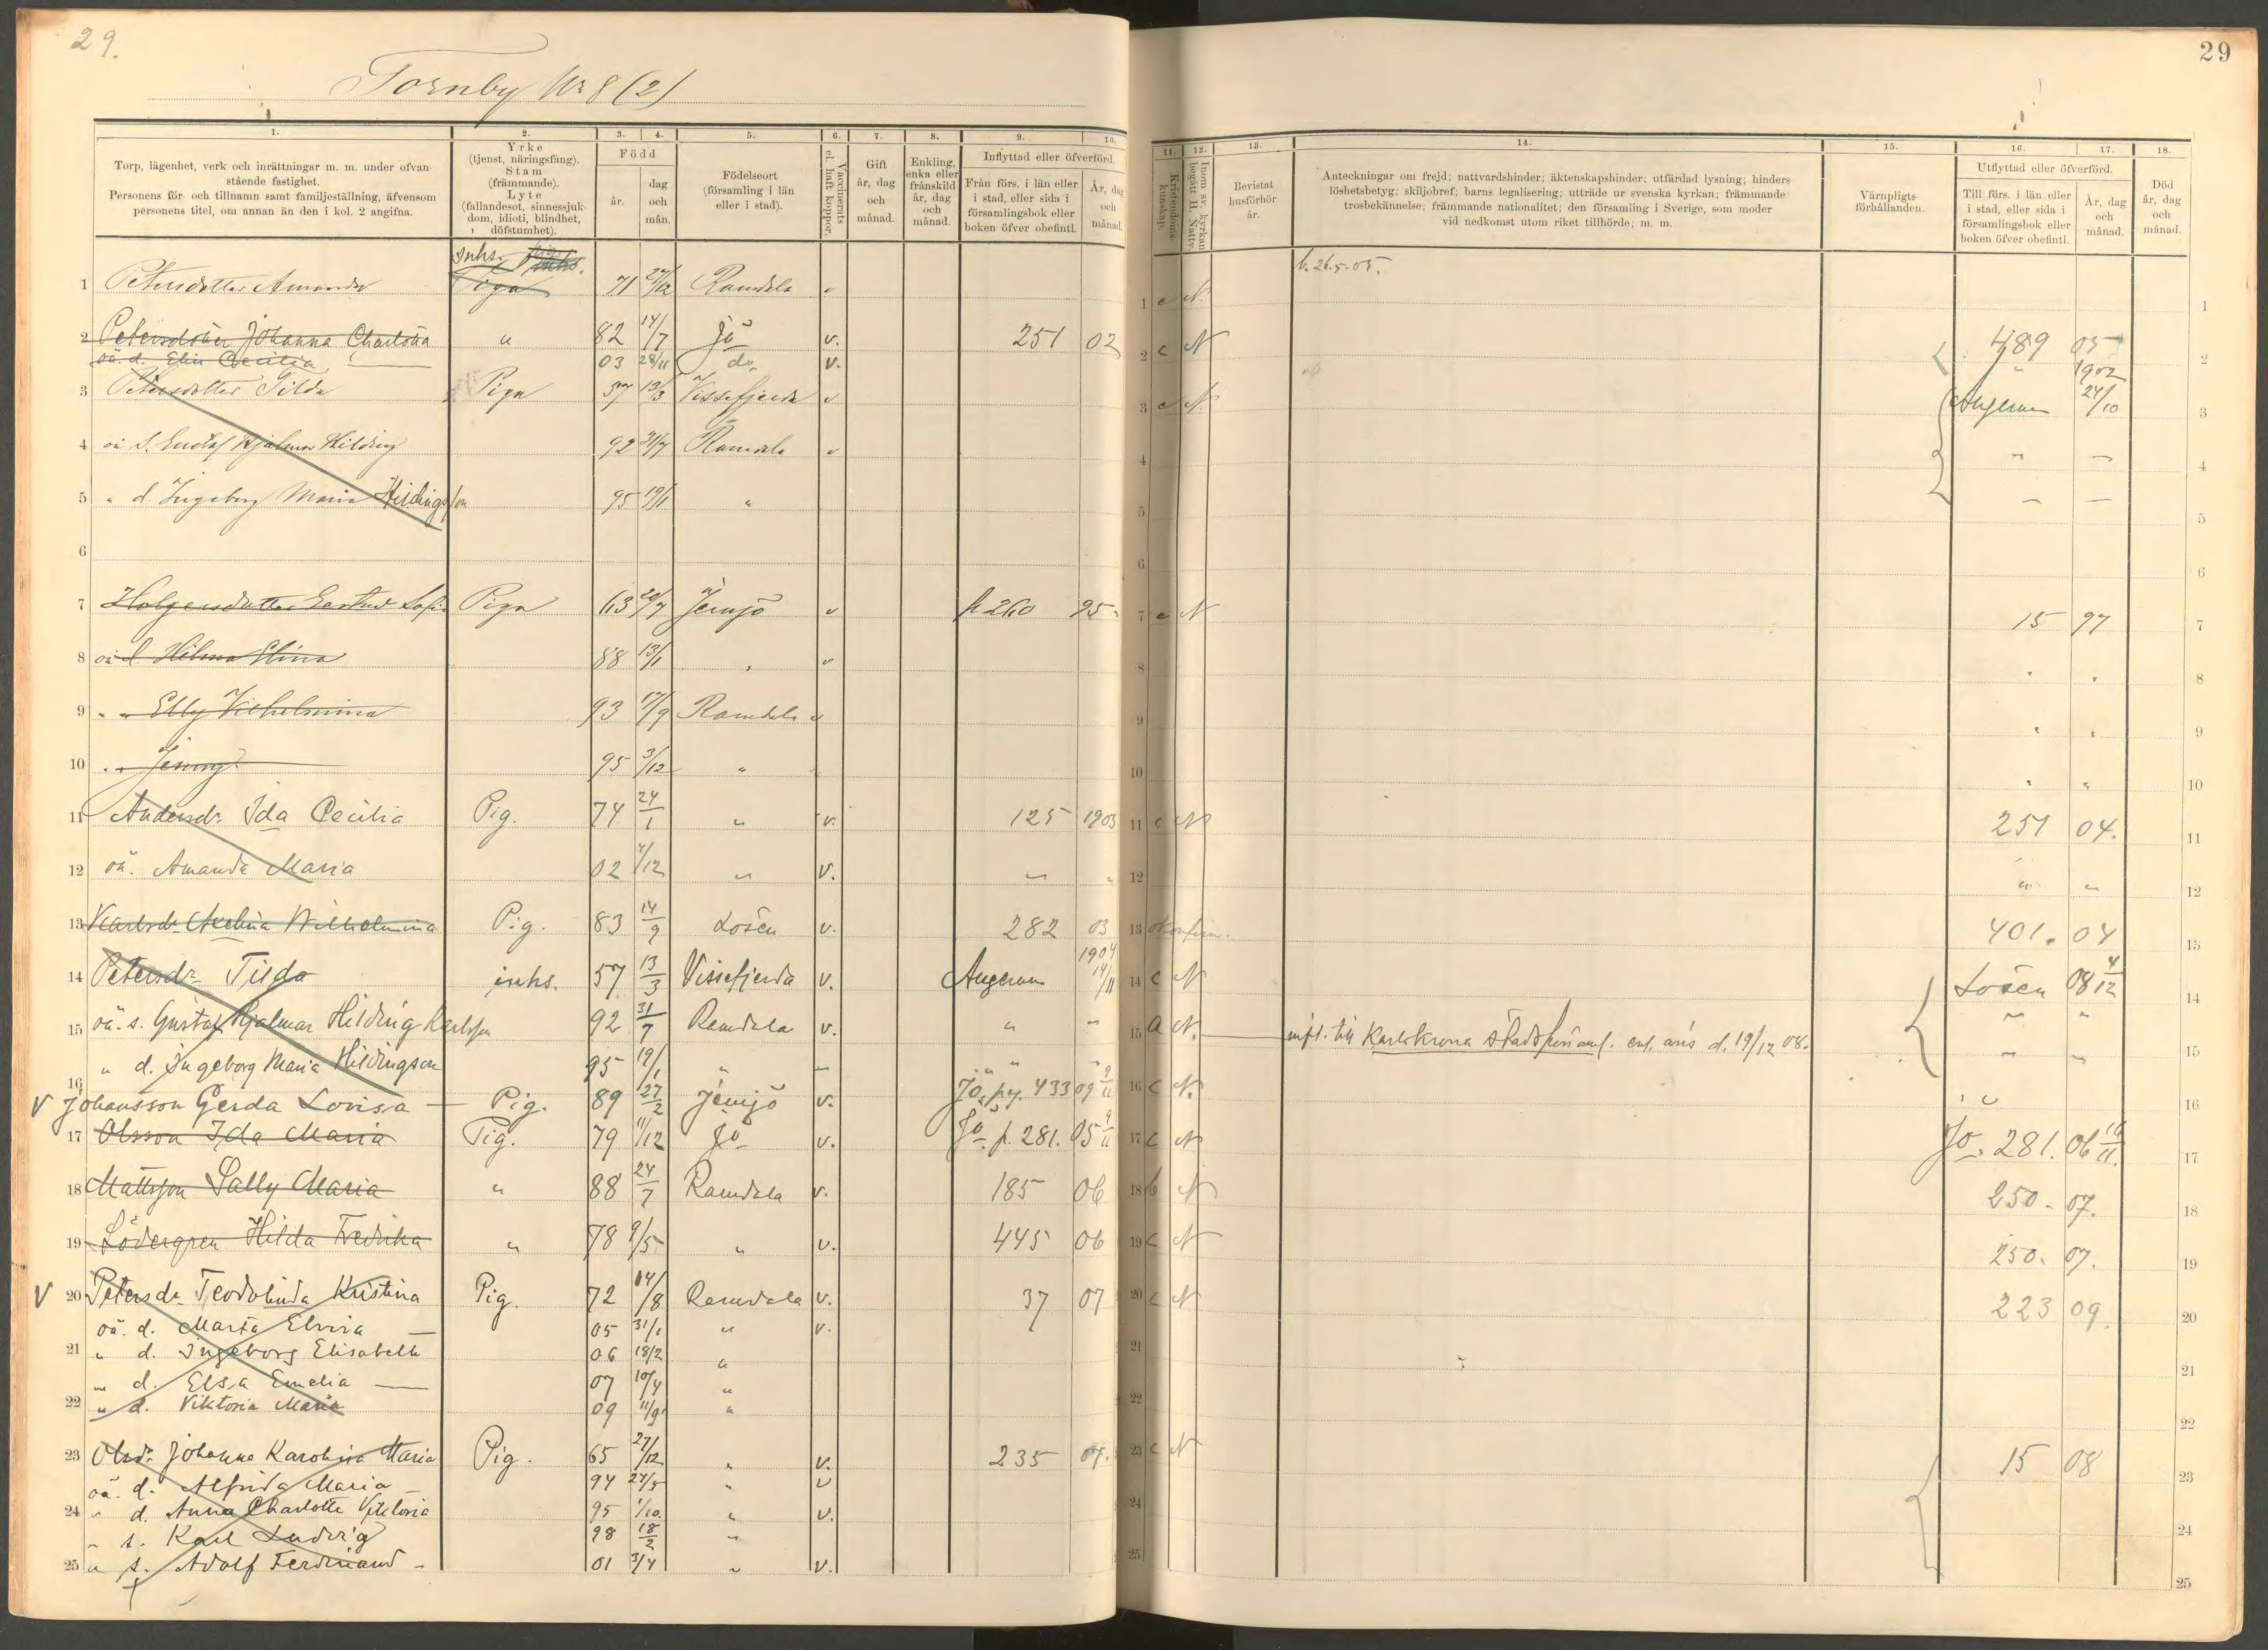 29.
29
Tornby No 8 (2)
1.
2.
3.
4.
5.
6.
7.
8.
9.
10.
11.
12.
13.
14.
15.
16.
17.
18.
Torp, lägenhet, verk och inrättningar m. m. under ofvan-
stående fastighet.
Personens för- och tillnamn samt familjeställning, äfvensom
personens titel, om annan än den i kol. 2 angifna.
Yrke
(tjenst, näringsfång).
Stam
(främmande).
Lyte
(fallandesot, sinnessjuk-
dom, idioti, blindhet,
döfstumhet).
Född
år.
dag
och
mån.
Födelseort
(församling i län
eller i stad).
Vaccinerats
el. haft koppor.
Gift
år, dag
och
månad.
Enkling,
enka eller
frånskild
år, dag
och
månad.
Inflyttad eller öfverförd.
Från förs. i län eller
i stad, eller sida i
församlingsbok eller
boken öfver obefintl.
År, dag
och
månad.
Kristendoms-
kunskap.
Inom sv. kyrkan
begått H. Nattv.
Bevistat
husförhör
år.
Anteckningar om frejd; nattvardshinder; äktenskapshinder; utfärdad lysning; hinders
löshetsbetyg; skiljobref; barns legalisering; utträde ur svenska kyrkan; främmande
trosbekännelse; främmande nationalitet; den församling i Sverige, som moder
vid nedkomst utom riket tillhörde; m. m.
Värnpligts-
förhållanden.
Utflyttad eller öfverförd.
Till förs. i län eller
i stad, eller sida i
församlingsbok eller
boken öfver obefintl.
År, dag
och
månad.
Död
år, dag
och
månad.
Inhs.
1 Petersdotter Amanda Piga 71 27/12 Ramdala v c N. b. 26.5.05. 1
2 Petersdotter Johanna Charlotta " 82 14/7 Jö v. 251 02 2 c N 489 05 2
oä. d. Elin Cecilia 03 28/11 do v. "
3 Petersdotter Tilda Piga 57 13/3 Vissefjerda v 3 c N. Augerum 1902 24/10 3
4 oä S. Gustaf Hjalmar Hilding 92 31/7 Ramdala v 4 " — 4
5 " d. Ingeborg Maria Hildingsson 95 19/1 " 5 — — 5
6 6 6
7 Holgersdotter Gertrud Sofia Piga 63 20/7 Jemjö v p 260 95 7 c N 15 97 7
8 oä d. Hilma Elina 88 13/1 " v 8 " " 8
9 " " Elly Vilhelmina 93 17/9 Ramdala v 9 " " 9
10 " " Jenny 95 3/12 " 10 " " 10
11 Andersdr Ida Cecilia Pig. 74 24/1 " v. 125 1903 11 c N 251 04. 11
12 oä. Amanda Maria 02 7/12 " v. " " 12 " " 12
13 Karlsdr Wilhelmina Pig. 83 14/9 Lösen v. 282 03 13 okonfirm. 401. 04 13
14 Petersdr Tilda inhs. 57 13/3 Vissefjerda v. Augerum 1904 14/11 14 c N Lösen 08 4/12 14
15 oä. s. Gustaf Hjalmar Hilding Karlsson 92 31/7 Ramdala v. " " 15 a N. infl. till Karlskrona stadsförsaml. enl. avis d. 19/12 08. " " 15
16 " d. Ingeborg Maria Hildingson 95 19/1 " — " " " "
V Johansson Gerda Lovisa — Pig. 89 27/2 Jemjö v. Jö, py. 433 09 9/11 16 c N. 16
17 Olsson Ida Maria Pig. 79 11/12 Jö v. Jö p. 281. 05 9/11 17 c N Jö. 281. 06 16/11. 17
18 Mattsson Sally Maria " 88 24/7 Ramdala v. 185 06 18 b N 250. 07. 18
19 Södergren Hilda Fredrika " 78 9/5 " v. 445 06 19 c N 250. 07. 19
V 20 Petersdr Teodolinda Kristina Pig. 72 14/8 Ramdala v. 37 07 20 c N 223 09. 20
oä. d. Marta Elvira — 05 31/1 " v.
21 " d. Ingeborg Elisabeth 06 18/2 " 21 21
" d. Elsa Emelia — 07 10/4 "
22 " d. Viktoria Maria 09 11/9 " 22 22
23 Olsdr Johanna Karolina Maria Pig. 65 27/12 " v. 235 07. 23 c N 15 08 23
oä. d. Alfrida Maria — 94 27/5 " v
24 " d. Anna Charlotte Viktoria 95 1/10. " v. 24 24
" s. Karl Ludvig 98 18/2 "
25 " s. Adolf Ferdinand — 01 3/4 " v. 25 25